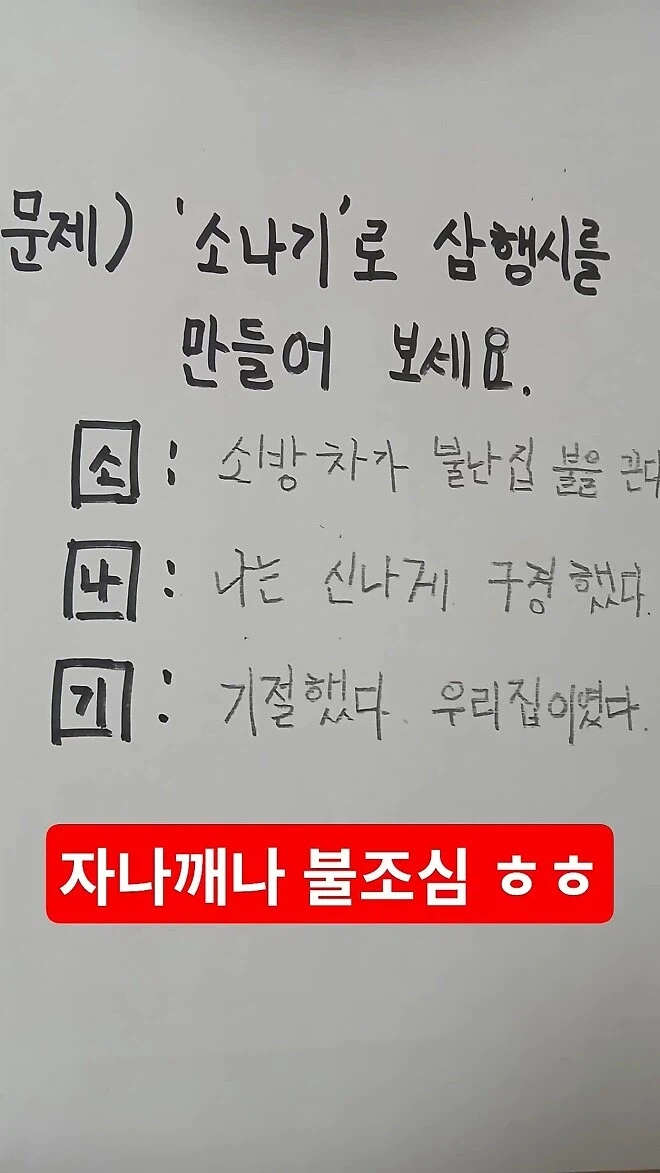 문제) '소나기'로 삼행시를
만들어 보세요.
소 : 소방차가 불난집 불을 끈다
나 : 나는 신나게 구경했다.
기 : 기절했다. 우리집이였다.
자나깨나 불조심 ㅎㅎ